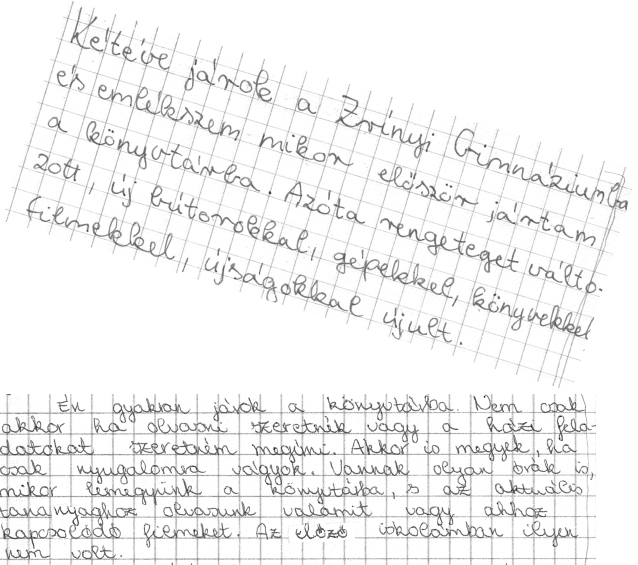 Két éve járok a Zrínyi Gimnáziumba
és emlékszem mikor először jártam
a könyvtárba. Azóta rengetegetválto-
zott, új bútorokkal, gépekkel, könyvekkel
filmekkel, újságokkal újult.
Én gyakran járok a könyvtárba. Nem csak
akkor ha olvasni szeretnék vagy a házi fela-
datokat szeretném megírni. Akkor is megyek, ha
csak nyugalomra vágyok. Vannak olyan órák is,
mikor lemegyünk a könyvtárba, s az aktuális
tananyaghoz olvasunk valamit vagy ahhoz
kapcsolódó filmeket. Az előző iskolámban ilyen
nem volt.